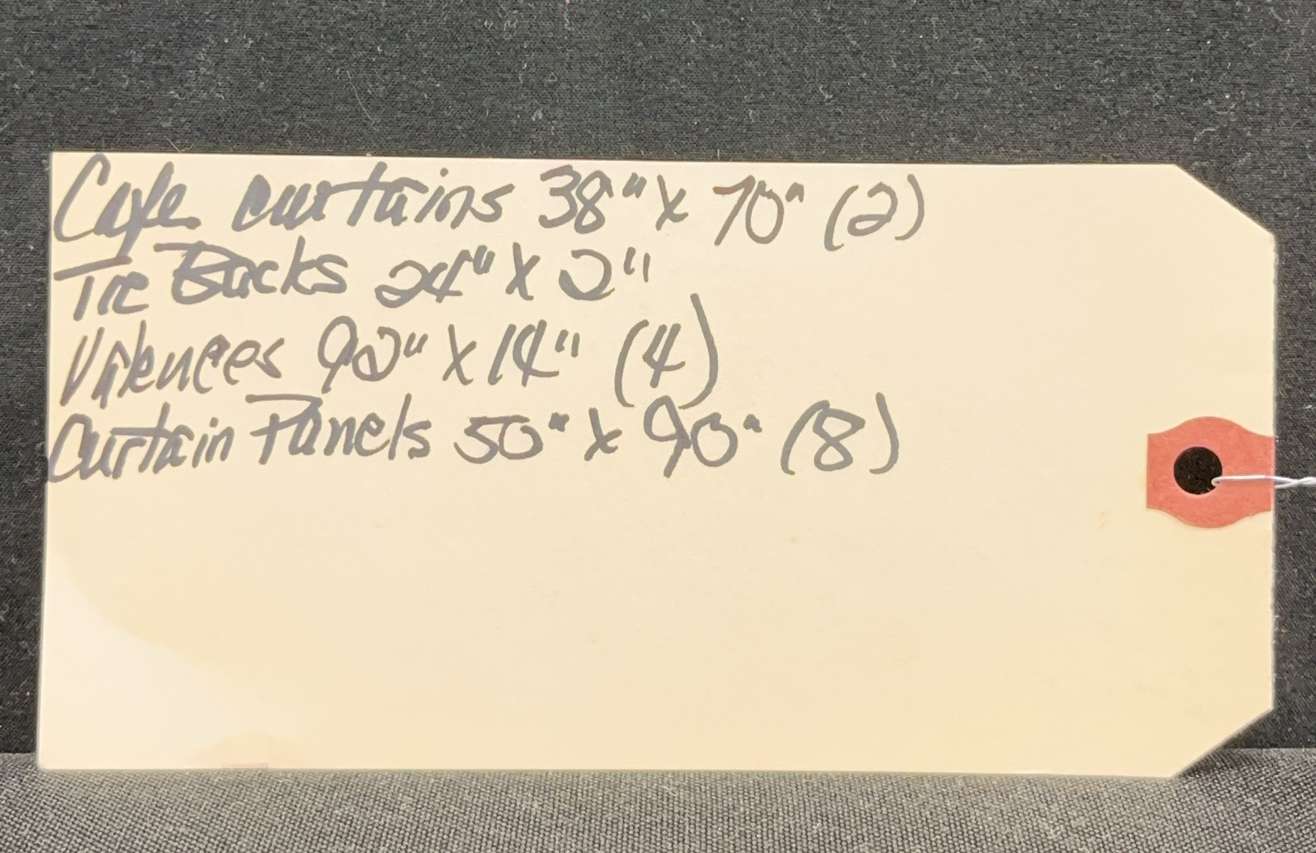 Cafe curtains 38" X 70" (2)
Tie Backs 24" X 2"
Valences 92" X 14" (4)
Curtain Panels 50" X 90" (8)